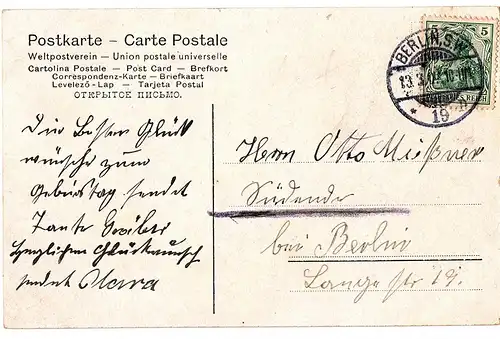 Postkarte – Carte Postale
Weltpostverein – Union postale universelle
Cartolina Postale – Post Card – Brefkort
Correspondenz-Karte – Briefkaart
Levelező-Lap – Tarjeta Postal
ОТКРЫТОЕ ПИСЬМО.
Die Besten Glück
wünsche zum
Geburtstag sendet
Tante
Herzlichen Glückwunsch
sendet Clara
BERLIN S.W.
13.3.
* 19
5
REICH
Herrn Otto Meißner
Südende
bei Berlin
Lange str 19.